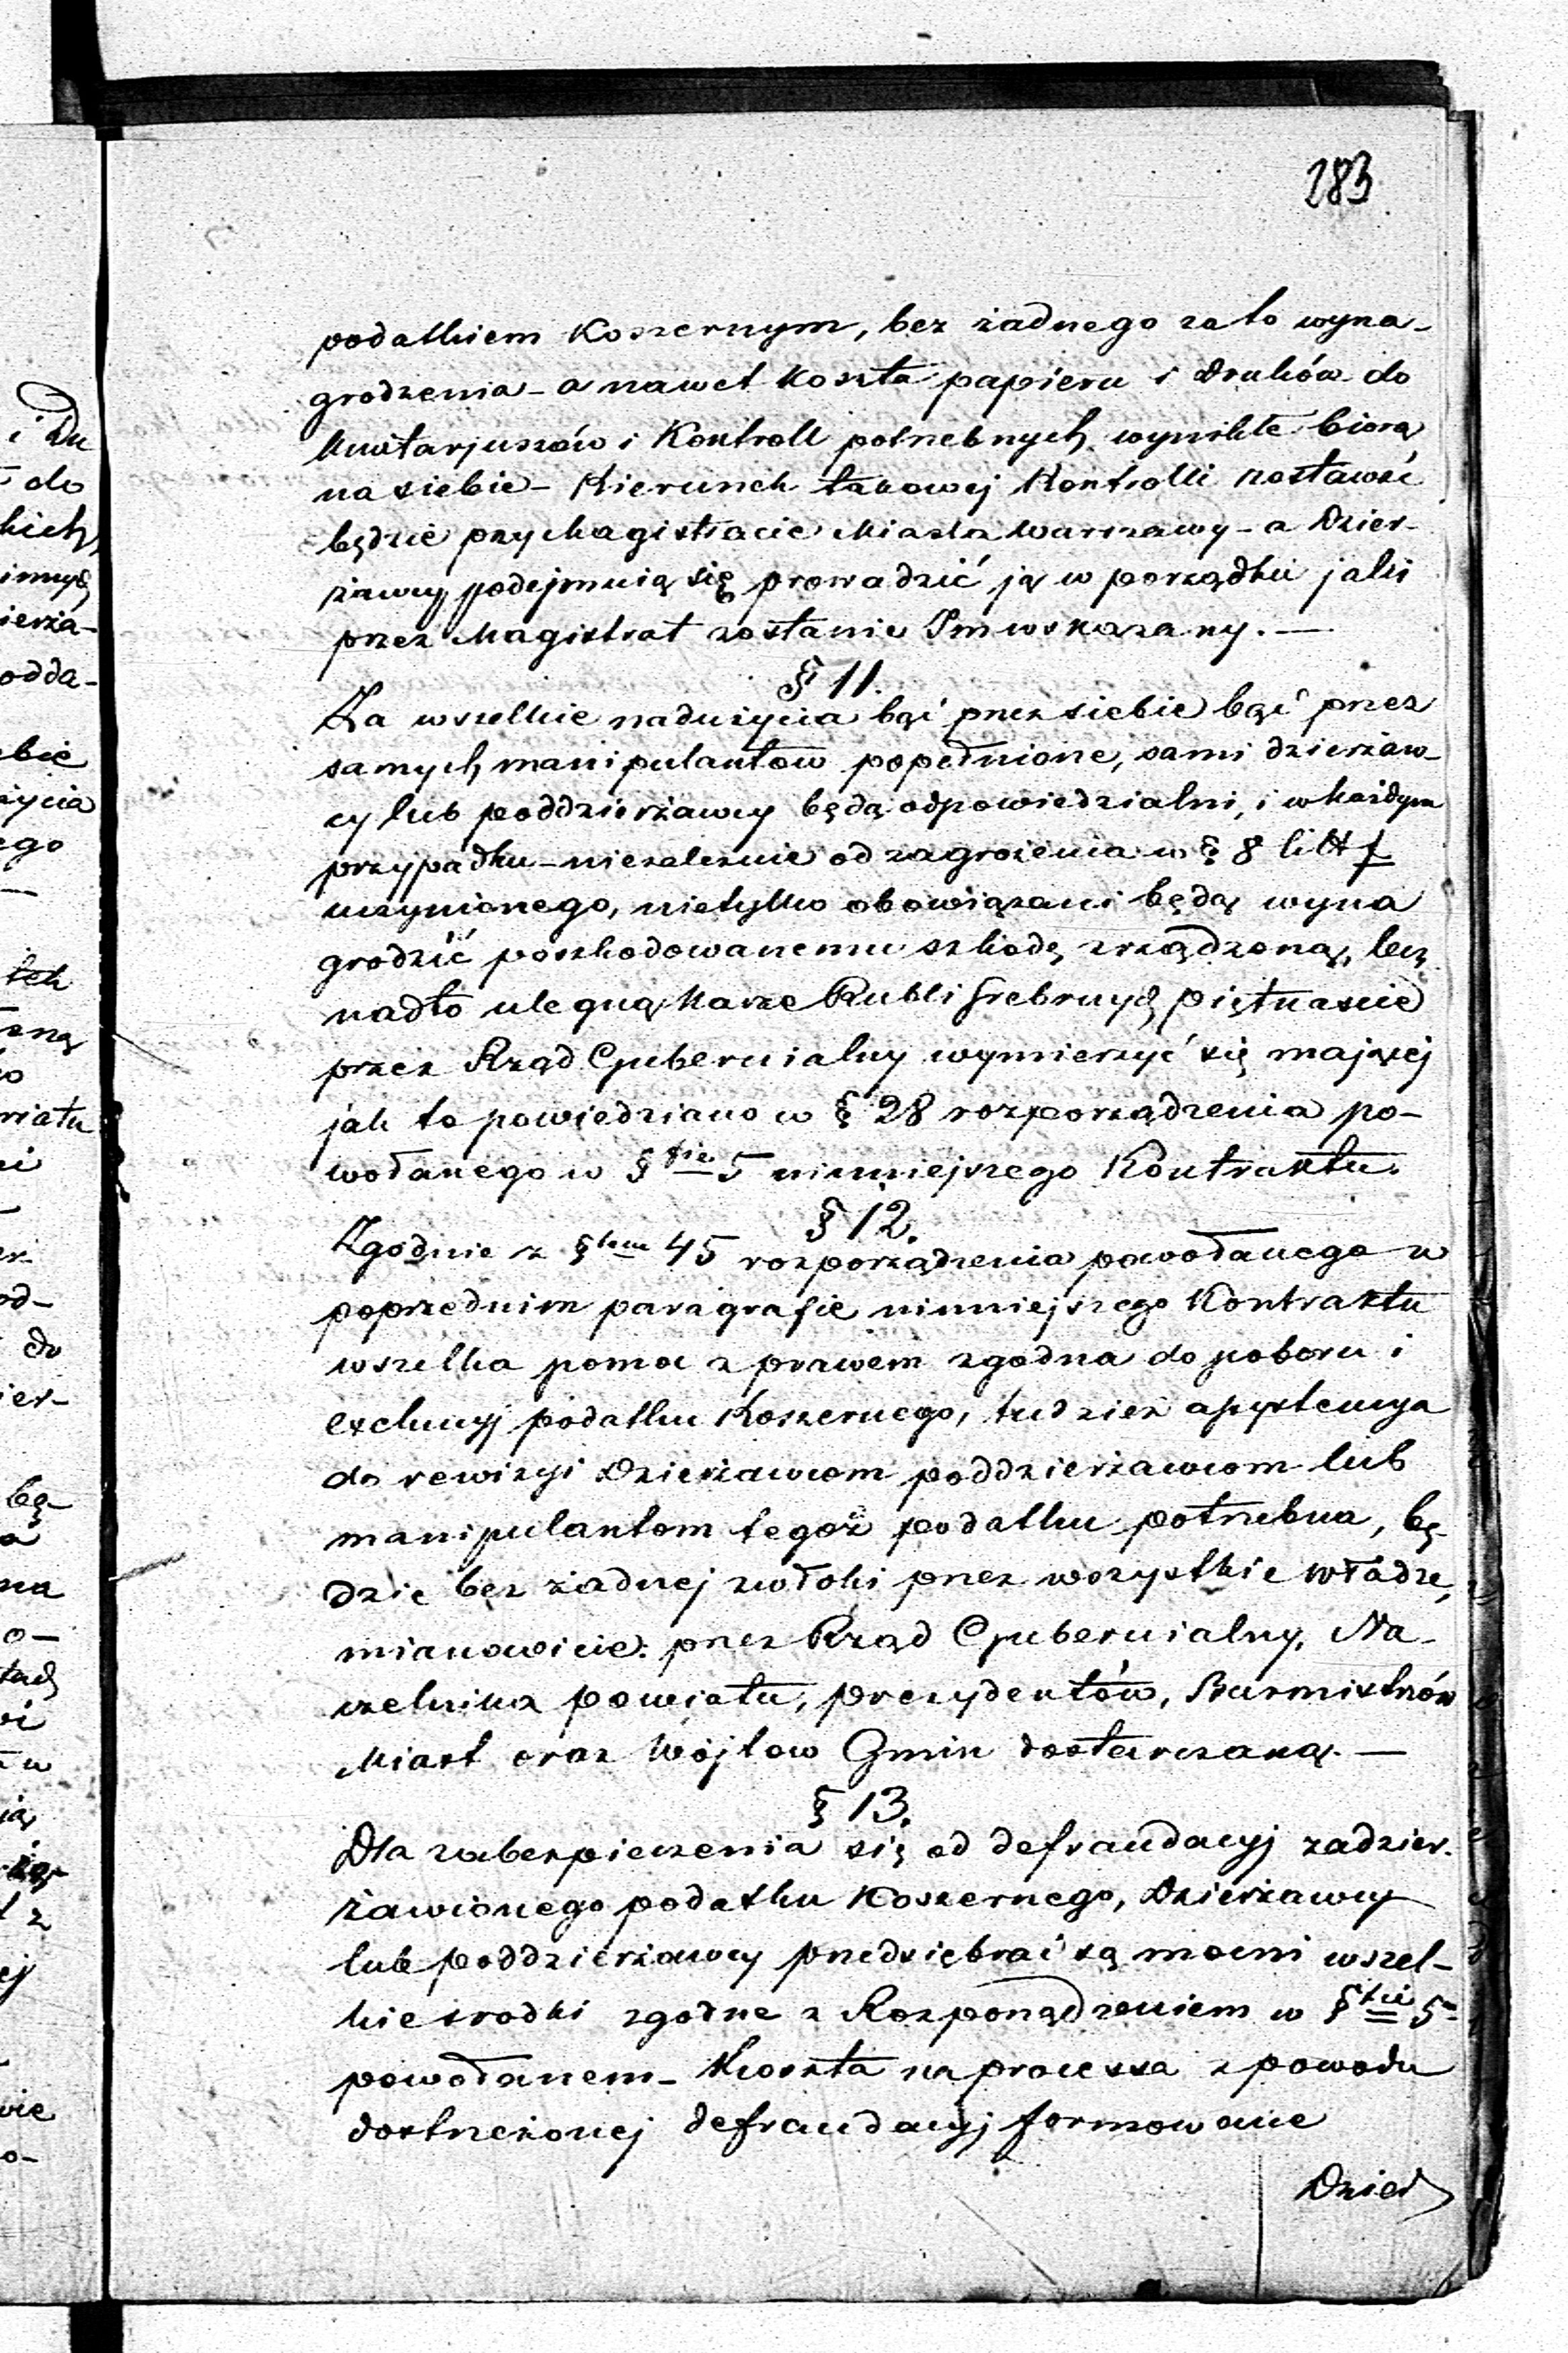 283
podatkiem Koszernym, bez żadnego zato wyna-
grodzenia - a nawet koszta papieru i Druków do
kwitarjuszów i Kontroll potrzebnych wynikłe biorą
na siebie - Kierunek takowej Kontrolli zostawać
będzie przy Magistracie Miasta Warszawy - a Dzier-
żawcy podejmują się prowadzić ją w porządku jaki
przez Magistrat zostanie Im wskazany. —
§ 11.
Za wszelkie nadużycia bąć przez siebie bąć przez
samych manipulantów popełnione, sami dzierżaw-
cy lub poddzierżawcy będą odpowiedzialni, i w każdym
przypadku - niezależnie od zagrożenia w § 8 litt f
uczynionego, nietylko obowiązani będą wyna
grodzić poszkodowanemu szkodę zrządzoną, lecz
nadto ulegną karze Rubli Srebrnych piętnaście
przez Rząd Gubernialny wymierzyć się mającej
jak to powiedziano w § 28 rozporządzenia po-
wołanego w § fie 5 ninniejszego Kontraktu.
§ 12.
Zgodnie z § tem 45 rozporządzenia powołanego w
poprzednim paragrafie ninniejszego Kontraktu
wszelka pomoc z prawem zgodna do poboru i
exekucyj podatku Koszernego, tudzież assystencya
do rewizyi Dzierżawcom poddzierżawcom lub
manipulantom tegoż podatku potrzebna, bę-
dzie bez żadnej zwłoki przez wszystkie władze,
mianowicie: przez Rząd Gubernialny, Na-
czelnika powiatu, prezydentów, Burmistrzów
Miast oraz Wójtow Gmin dostarczaną. —
§ 13.
Dla zabezpieczenia się od defraudacyj zadzier-
żawionego podatku Koszernego, Dzierżawcy
lub poddzierżawcy przedsiębrać są mocni wszel-
kie srodki zgodne z Rozporządzeniem w § fie 5m
powołanem - Koszta na processa z powodu
dostrzeżonej defraudacyj formowane
Dzier